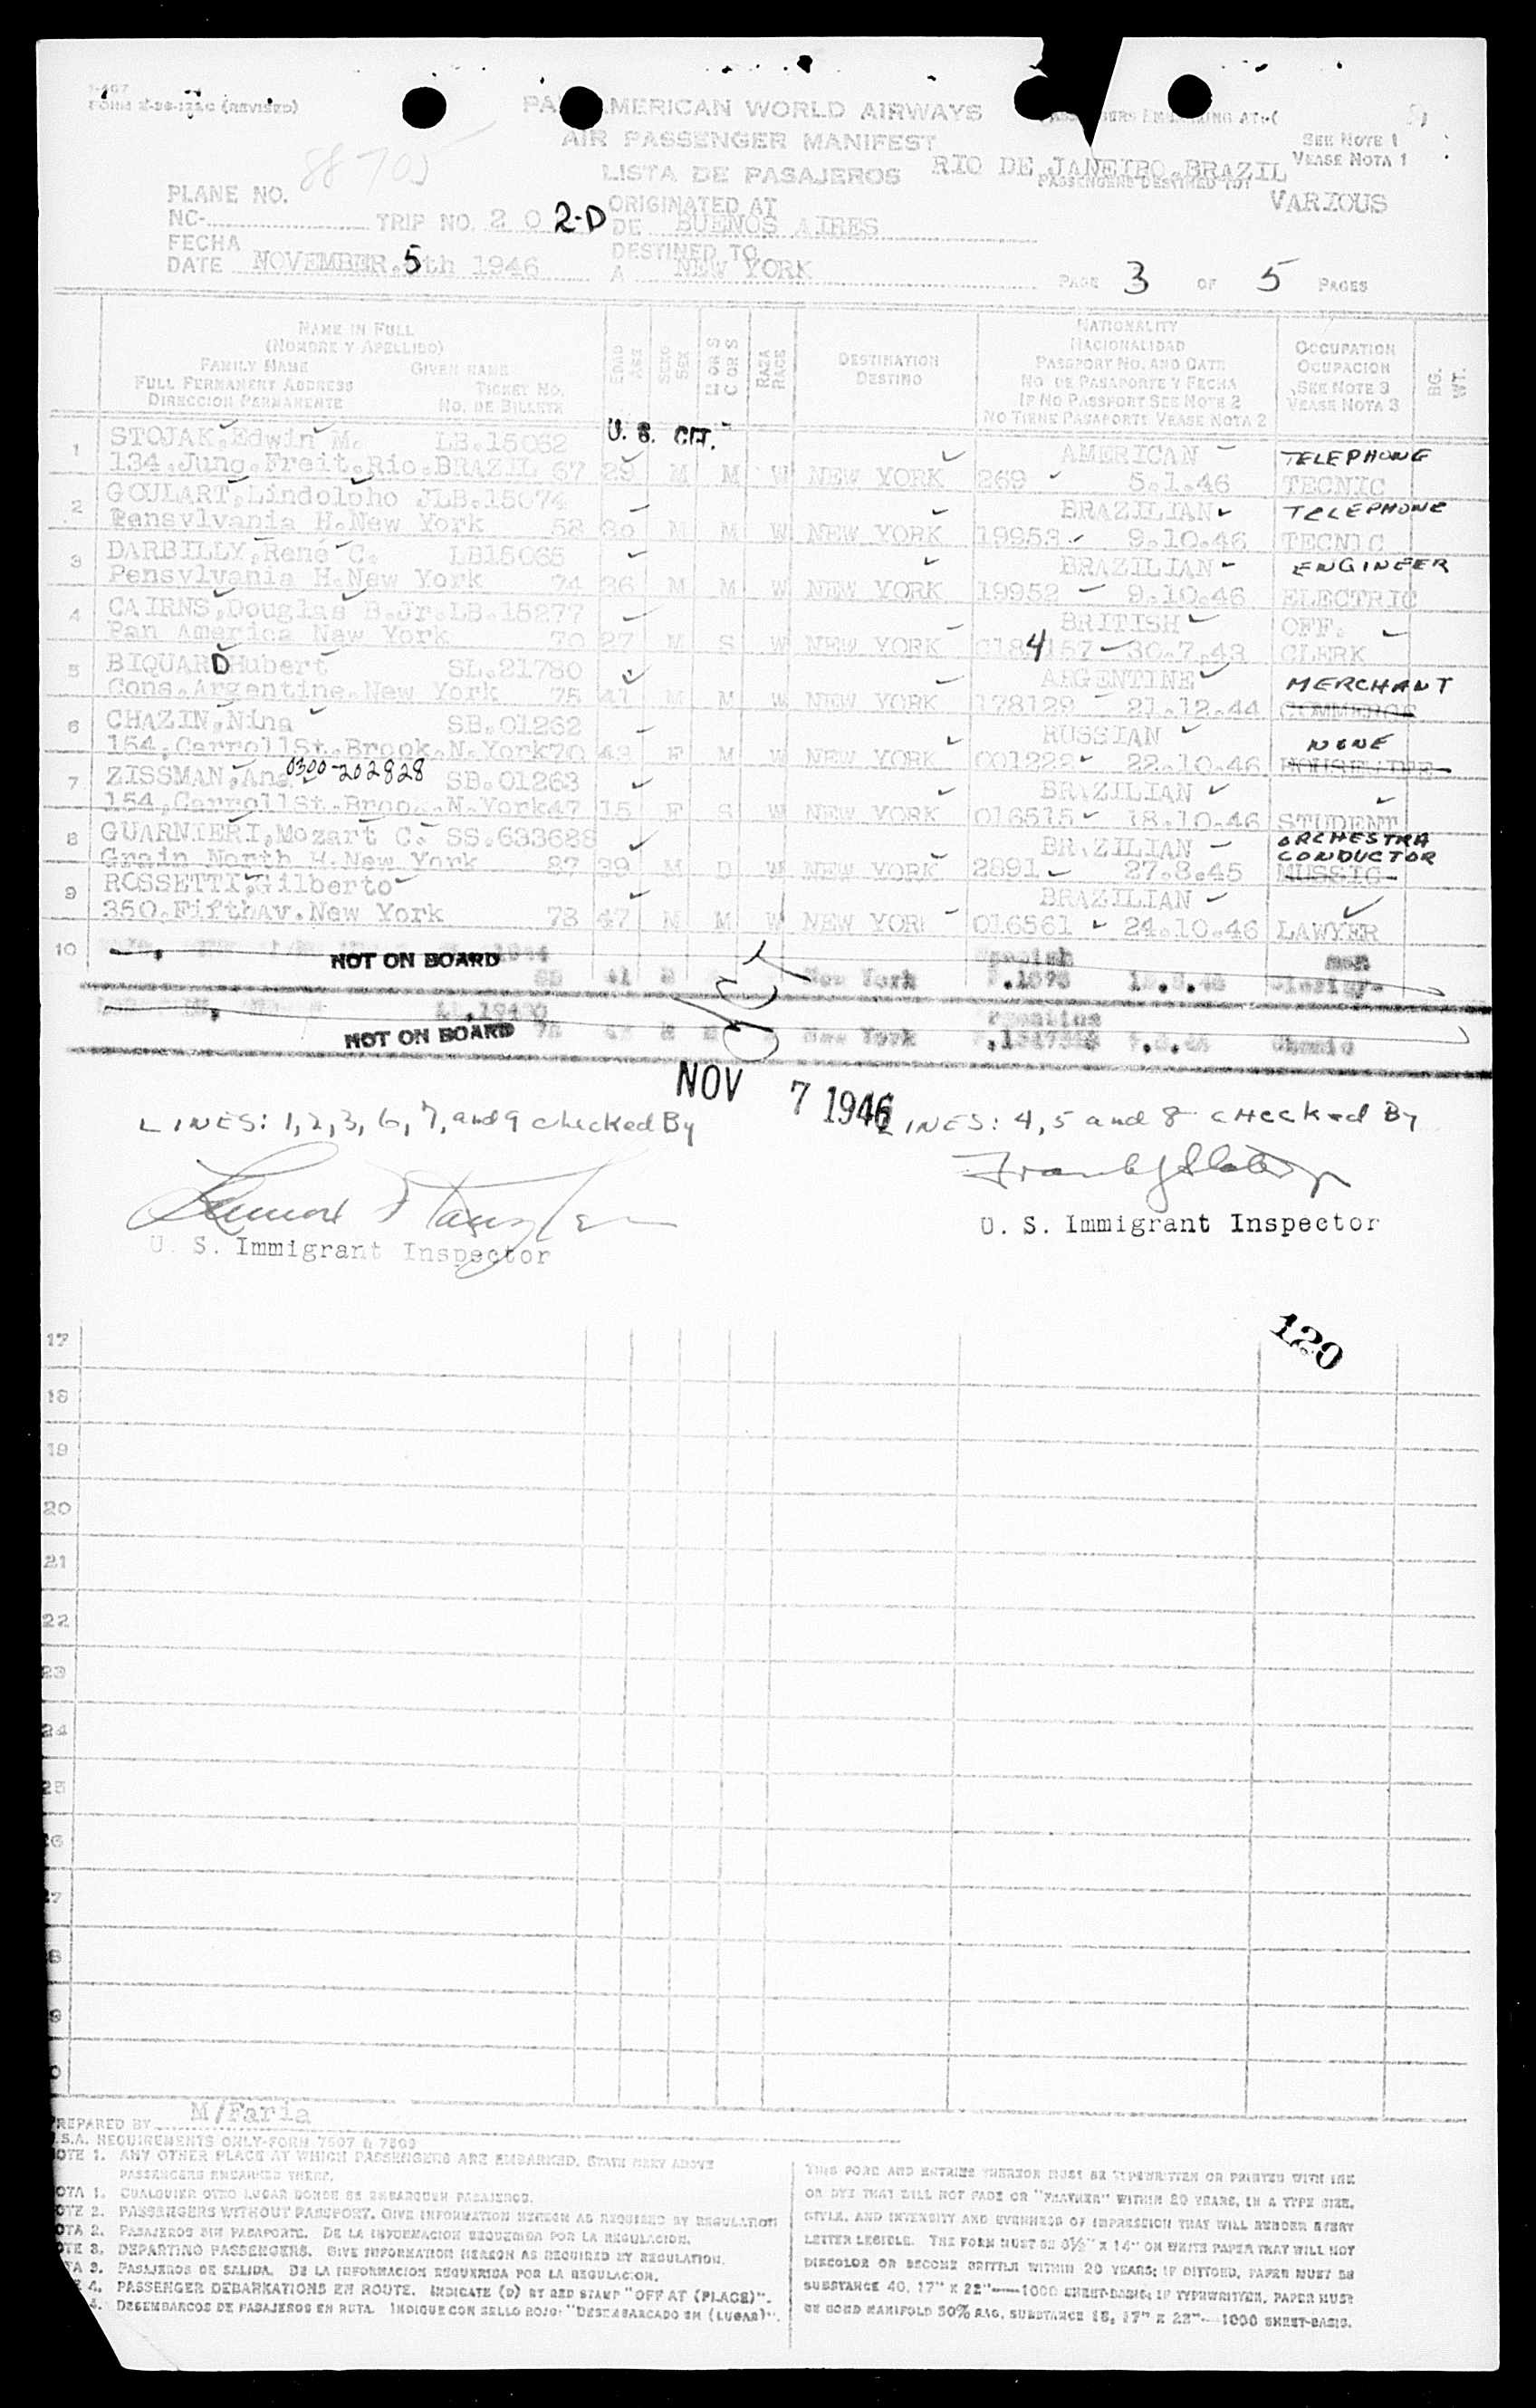 1-407
FORM (REVISED)
PAN AMERICAN WORLD AIRWAYS
AIR PASSENGER MANIFEST
LISTA DE PASAJEROS
SEE NOTE 1
VEASE NOTA 1
RIO DE JANEIRO.BRAZIL
PASSENGERS DESTINED TO:
VARIOUS
88705
PLANE NO.
NC- TRIP NO. 202-D
ORIGINATED AT
DE BUENOS AIRES
FECHA
DATE NOVEMBER.5th 1946
DESTINED TO
A NEW YORK
PAGE 3 OF 5 PAGES
NAME IN FULL
(NOMBRE Y APELLIDO)
FAMILY NAME GIVEN NAME
FULL PERMANENT ADDRESS TICKET NO.
DIRECCION PERMANENTE NO. DE BILLETE
EDAD AGE
SEXO SEX
M OR S
C OR S
RAZA RACE
DESTINATION
DESTINO
NATIONALITY
NACIONALIDAD
PASSPORT NO. AND DATE
NO. DE PASAPORTE Y FECHA
IF NO PASSPORT SEE NOTE 2
NO TIENE PASAPORTE VEASE NOTA 2
OCCUPATION
OCUPACION
SEE NOTE 3
VEASE NOTA 3
BG. WT.
1 STOJAK,Edwin M. LB.15062 U. S. CIT. AMERICAN TELEPHONE
134.Jung.Freit.Rio.BRAZIL 67 29 M M W NEW YORK 269 5.1.46 TECNIC
2 GOULART,Lindolpho JLB.15074 BRAZILIAN TELEPHONE
Pensylvania H.New York 58 M M W NEW YORK 19953 9.10.46 TECNIC
3 DARBILLY,René C. LB15065 BRAZILIAN ENGINEER
Pensylvania H.New York 74 36 M M W NEW YORK 19952 9.10.46 ELECTRIC
4 CAIRNS,Douglas B.Jr.LB.15277 BRITISH OFF.
Pan America New York 70 27 M S W NEW YORK 0184157 30.7.43 CLERK
5 BIQUARD Hubert SL.21780 ARGENTINE MERCHANT
Cons.Argentine.New York 75 41 M M W NEW YORK 178129 21.12.44 COMMERCE
6 CHAZIN,Nina SB.01262 RUSSIAN NONE
154,CarrollSt.Brook.N.York70 42 F M W NEW YORK 001222 22.10.46 HOUSEWIFE
7 ZISSMAN,Ana 0300-202828 SB.01263 BRAZILIAN
154,CarrollSt.Brook.N.York47 15 F S W NEW YORK 016515 18.10.46 STUDENT
8 GUARNIERI,Mozart C. SS.633688 BRAZILIAN ORCHESTRA CONDUCTOR
Grain North H.New York 87 39 M D W NEW YORK 2891 27.8.45 MUSSIC
9 ROSSETTI,Gilberto BRAZILIAN
350.FifthAv.New York 73 47 M M W NEW YORK 016561 24.10.46 LAWYER
10 NOT ON BOARD Spanish
41 New York
NOT ON BOARD
New York
NOV 7 1946
LINES: 1,2,3,6,7, and 9 checked By
LINES: 4,5 and 8 checked By
U. S. Immigrant Inspector
U. S. Immigrant Inspector
120
17
18
19
20
21
22
23
24
25
26
27
8
9
0
PREPARED BY M/Faria
U.S.A. REQUIREMENTS ONLY-FORM 7507 & 7509
NOTE 1. ANY OTHER PLACE AT WHICH PASSENGERS ARE EMBARKED. STATE HERE ABOVE
PASSENGERS EMBARKED THERE.
NOTA 1. CUALQUIER OTRO LUGAR DONDE SE EMBARQUEN PASAJEROS.
NOTE 2. PASSENGERS WITHOUT PASSPORT. GIVE INFORMATION HEREON AS REQUIRED BY REGULATION
NOTA 2. PASAJEROS SIN PASAPORTE. DE LA INFORMACION REQUERIDA POR LA REGULACION.
NOTE 3. DEPARTING PASSENGERS. GIVE INFORMATION HEREON AS REQUIRED BY REGULATION.
NOTA 3. PASAJEROS DE SALIDA. DE LA INFORMACION REQUERIDA POR LA REGULACION.
NOTE 4. PASSENGER DEBARKATIONS EN ROUTE. INDICATE (D) BY RED STAMP "OFF AT (PLACE)".
4. DESEMBARCOS DE PASAJEROS EN RUTA. INDIQUE CON SELLO ROJO: "DESEMBARCADO EN (LUGAR)".
THIS FORM AND ENTRIES THEREON MUST BE TYPEWRITTEN OR PRINTED WITH INK
OR DYE THAT WILL NOT FADE OR "FEATHER" WITHIN 20 YEARS, IN A TYPE SIZE,
STYLE, AND INTENSITY AND EVENNESS OF IMPRESSION THAT WILL RENDER EVERY
LETTER LEGIBLE. THE FORM MUST BE 8½" X 14" ON WHITE PAPER THAT WILL NOT
DISCOLOR OR BECOME BRITTLE WITHIN 20 YEARS; IF DITTOED, PAPER MUST BE
SUBSTANCE 40, 17" X 22"—1000 SHEET-BASIS; IF TYPEWRITTEN, PAPER MUST
BE BOND MANIFOLD 50% RAG, SUBSTANCE 16, 17" X 22"—1000 SHEET-BASIS.